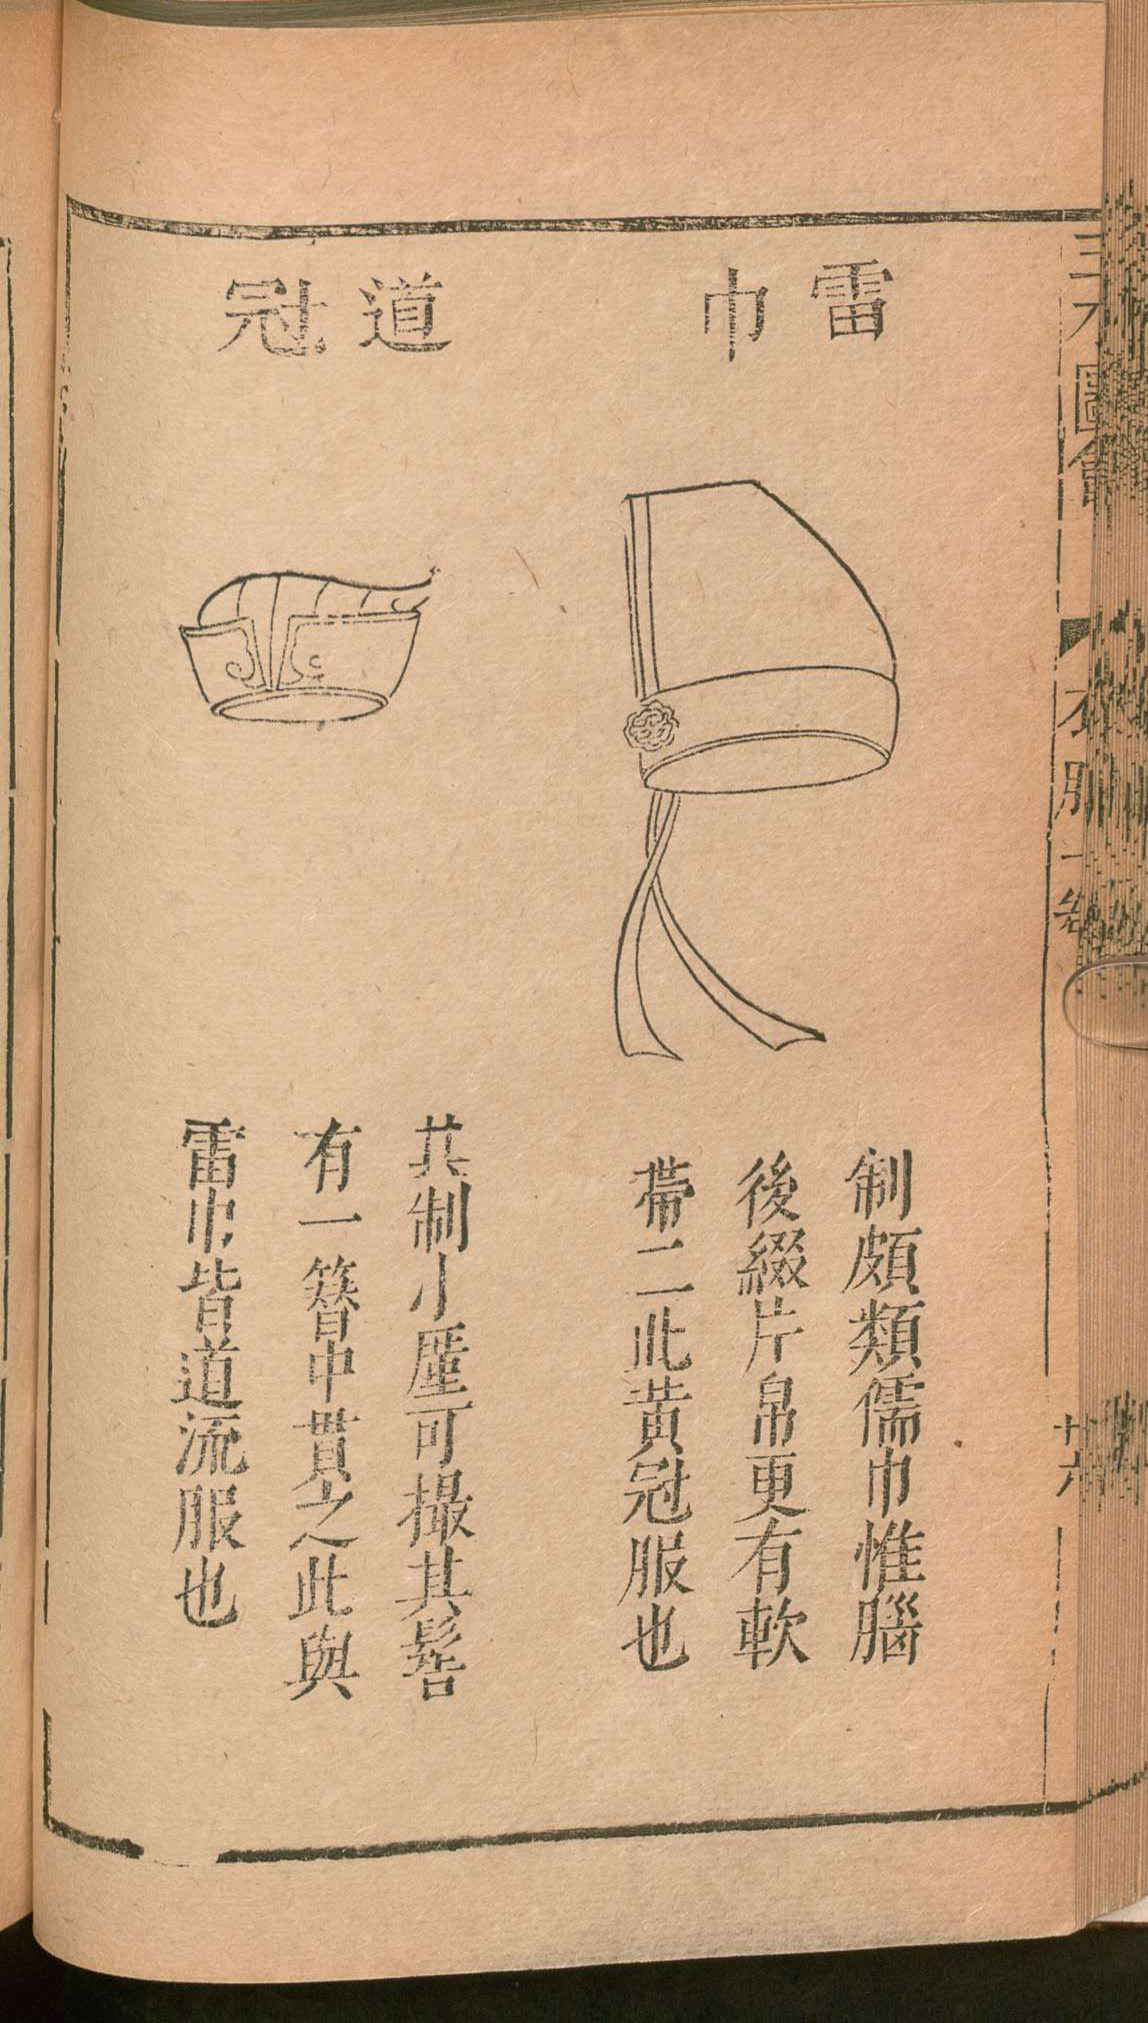 雷巾
制頗類儒巾惟腦
後綴片帛更有軟
帶二此黃冠服也
道冠
其制小厪可撮其髻
有一簪中貫之此與
雷巾皆道流服也
圖會
衣服一卷
廿六